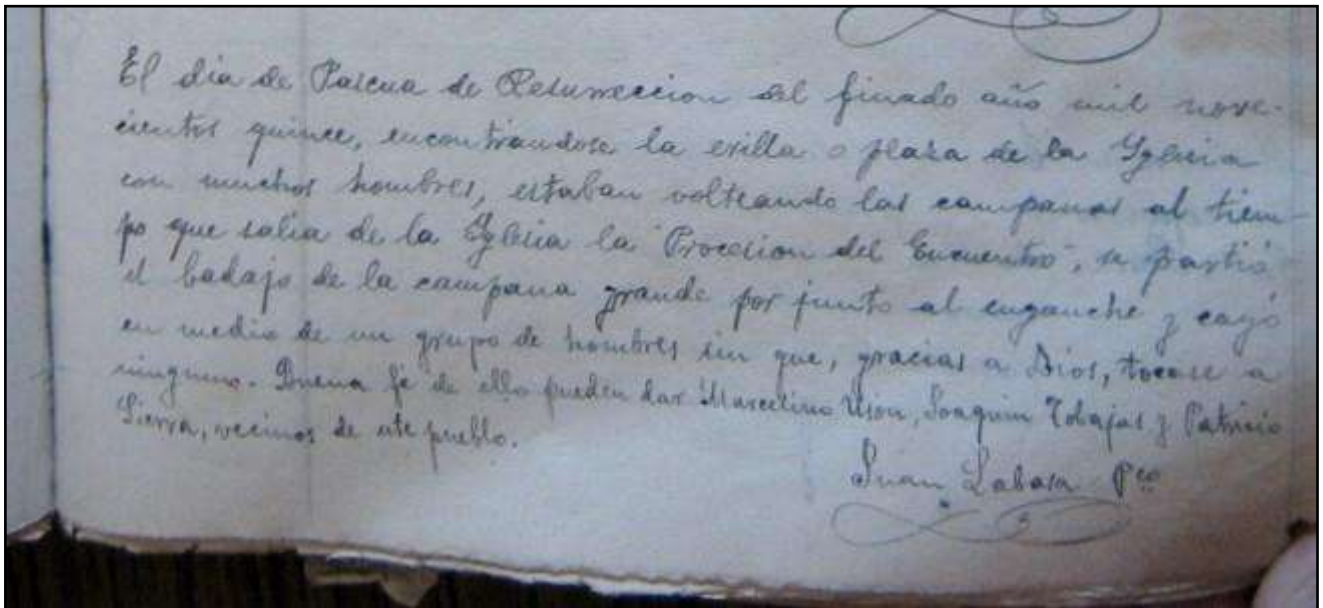 El dia de Pascua de Resurreccion del finado año mil nove-
cientos quince, encontrandose la erilla o plaza de la Yglesia
con muchos hombres, estaban volteando las campanas al tiem-
po que salia de la Yglesia la "Procesion del Encuentro", se partió
el badajo de la campana grande por junto al enganche y cayó
en medio de un grupo de hombres sin que, gracias a Dios, tocase a
ninguno. Buena fé de ello pueden dar Marcelino Uson, Joaquin Tobajas y Patricio
Sierra, vecinos de este pueblo.
Juan Labasa Pbo